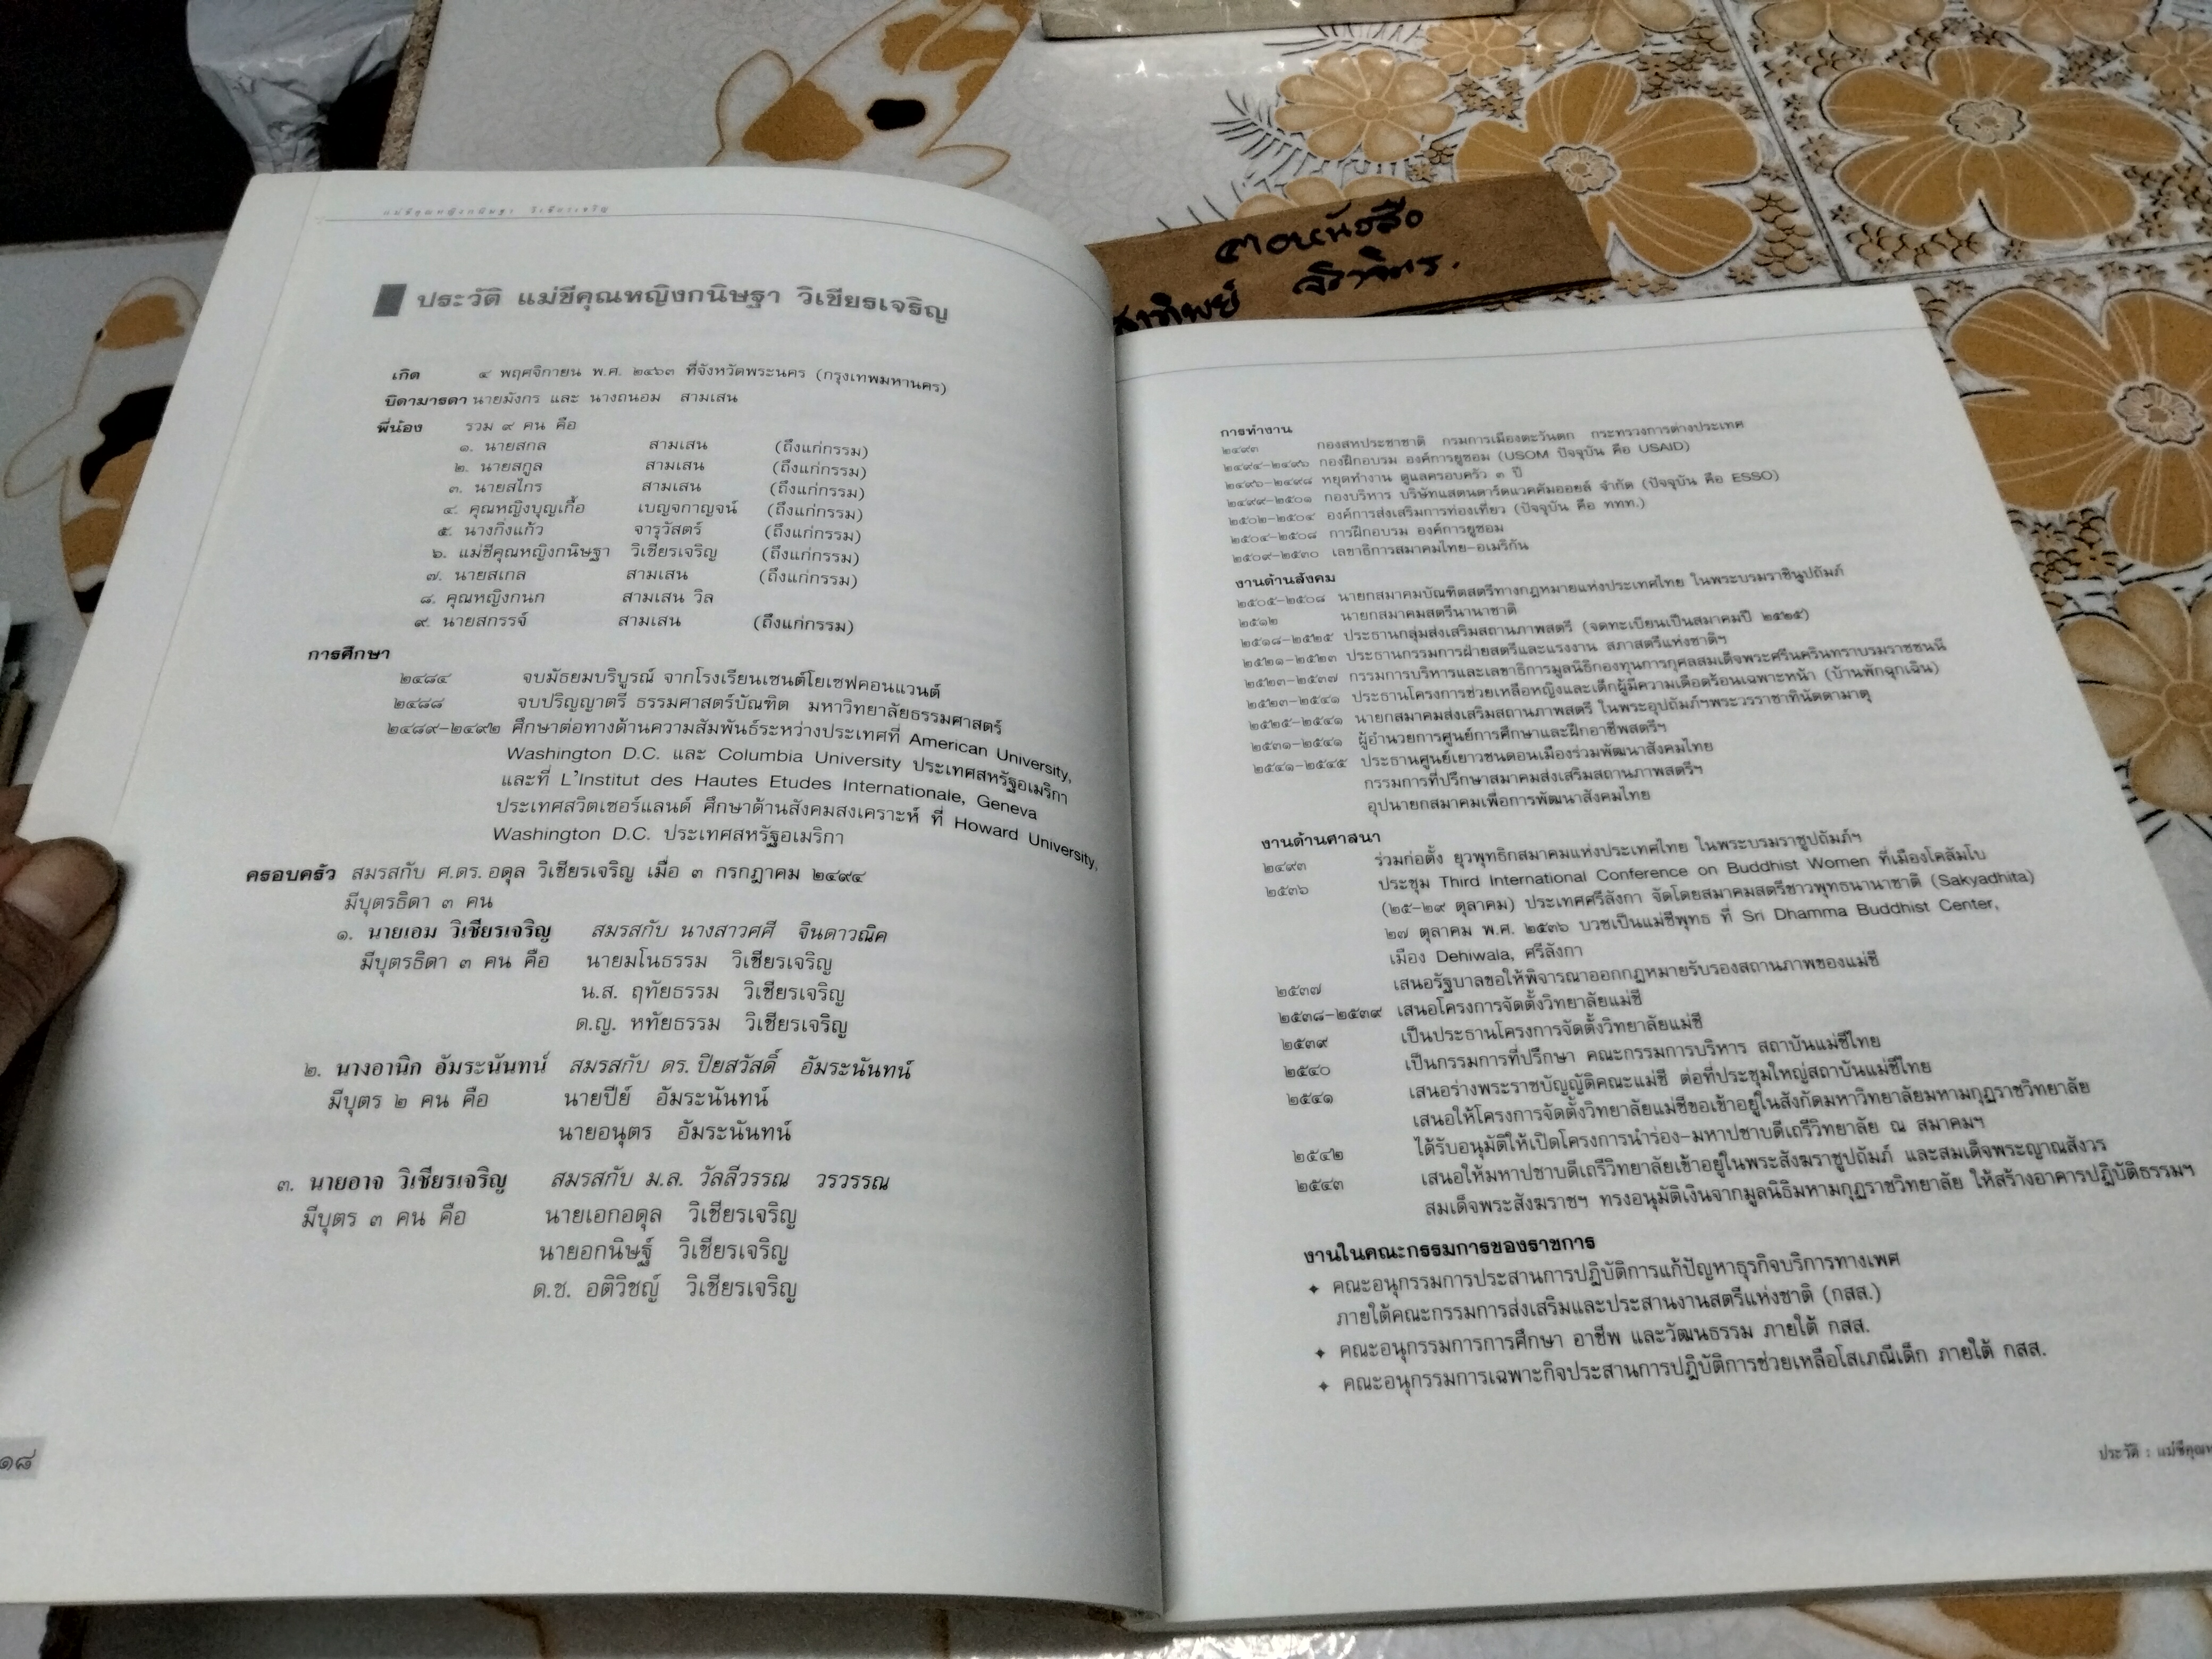 แม่ชีคุณหญิงกนิษฐา วิเชียรเจริญ
ประวัติ แม่ชีคุณหญิงกนิษฐา วิเชียรเจริญ
เกิด ๔ พฤศจิกายน พ.ศ. ๒๔๖๓ ที่จังหวัดพระนคร (กรุงเทพมหานคร)
บิดามารดา นายมังกร และ นางถนอม สามเสน
พี่น้อง รวม ๙ คน คือ
๑. นายสกล สามเสน (ถึงแก่กรรม)
๒. นายสกูล สามเสน (ถึงแก่กรรม)
๓. นายสไกร สามเสน (ถึงแก่กรรม)
๔. คุณหญิงบุญเกื้อ เบญจกาญจน์ (ถึงแก่กรรม)
๕. นางกิ่งแก้ว จารุวัสตร์ (ถึงแก่กรรม)
๖. แม่ชีคุณหญิงกนิษฐา วิเชียรเจริญ (ถึงแก่กรรม)
๗. นายสเกล สามเสน (ถึงแก่กรรม)
๘. คุณหญิงกนก สามเสน วิล
๙. นายสกรรจ์ สามเสน (ถึงแก่กรรม)
การศึกษา
๒๔๘๔ จบมัธยมบริบูรณ์ จากโรงเรียนเซนต์โยเซฟคอนแวนต์
๒๔๘๘ จบปริญญาตรี ธรรมศาสตร์บัณฑิต มหาวิทยาลัยธรรมศาสตร์
๒๔๘๙-๒๔๙๒ ศึกษาต่อทางด้านความสัมพันธ์ระหว่างประเทศที่ American University,
Washington D.C. และ Columbia University ประเทศสหรัฐอเมริกา
และที่ L'Institut des Hautes Etudes Internationale, Geneva
ประเทศสวิตเซอร์แลนด์ ศึกษาด้านสังคมสงเคราะห์ ที่ Howard University,
Washington D.C. ประเทศสหรัฐอเมริกา
ครอบครัว สมรสกับ ศ.ดร. อดุล วิเชียรเจริญ เมื่อ ๓ กรกฎาคม ๒๔๙๔
มีบุตรธิดา ๓ คน
๑. นายเอม วิเชียรเจริญ สมรสกับ นางสาวศศี จินดาวณิค
มีบุตรธิดา ๓ คน คือ นายมโนธรรม วิเชียรเจริญ
น.ส. ฤทัยธรรม วิเชียรเจริญ
ด.ญ. หทัยธรรม วิเชียรเจริญ
๒. นางอานิก อัมระนันทน์ สมรสกับ ดร. ปิยสวัสดิ์ อัมระนันทน์
มีบุตร ๒ คน คือ นายปีย์ อัมระนันทน์
นายอนุตร อัมระนันทน์
๓. นายอาจ วิเชียรเจริญ สมรสกับ ม.ล. วัลลีวรรณ วรวรรณ
มีบุตร ๓ คน คือ นายเอกอดุล วิเชียรเจริญ
นายอกนิษฐ์ วิเชียรเจริญ
ด.ช. อติวิชญ์ วิเชียรเจริญ
๑๘
ตอหนังสือ
สาทิพย์ จิราจิตร.
การทำงาน
๒๔๙๓ กองสหประชาชาติ กรมการเมืองตะวันตก กระทรวงการต่างประเทศ
๒๔๙๔-๒๔๙๖ กองฝึกอบรม องค์การยูซอม (USOM ปัจจุบัน คือ USAID)
๒๔๙๖-๒๔๙๘ หยุดทำงาน ดูแลครอบครัว ๓ ปี
๒๔๙๙-๒๕๐๑ กองบริหาร บริษัทแสตนดาร์ดแวคคัมออยล์ จำกัด (ปัจจุบัน คือ ESSO)
๒๕๐๒-๒๕๐๔ องค์การส่งเสริมการท่องเที่ยว (ปัจจุบัน คือ ททท.)
๒๕๐๔-๒๕๐๘ การฝึกอบรม องค์การยูซอม
๒๕๐๙-๒๕๓๐ เลขาธิการสมาคมไทย-อเมริกัน
งานด้านสังคม
๒๕๐๕-๒๕๐๘ นายกสมาคมบัณฑิตสตรีทางกฎหมายแห่งประเทศไทย ในพระบรมราชินูปถัมภ์
๒๕๑๒ นายกสมาคมสตรีนานาชาติ
๒๕๑๘-๒๕๒๕ ประธานกลุ่มส่งเสริมสถานภาพสตรี (จดทะเบียนเป็นสมาคมปี ๒๕๒๕)
๒๕๒๑-๒๕๒๓ ประธานกรรมการฝ่ายสตรีและแรงงาน สภาสตรีแห่งชาติฯ
๒๕๒๓-๒๕๓๗ กรรมการบริหารและเลขาธิการมูลนิธิกองทุนการกุศลสมเด็จพระศรีนครินทราบรมราชชนนี
๒๕๒๓-๒๕๔๑ ประธานโครงการช่วยเหลือหญิงและเด็กผู้มีความเดือดร้อนเฉพาะหน้า (บ้านพักฉุกเฉิน)
๒๕๒๕-๒๕๔๑ นายกสมาคมส่งเสริมสถานภาพสตรี ในพระอุปถัมภ์ฯพระวรราชาทินัดดามาตุ
๒๕๓๑-๒๕๔๑ ผู้อำนวยการศูนย์การศึกษาและฝึกอาชีพสตรีฯ
๒๕๔๑-๒๕๔๕ ประธานศูนย์เยาวชนดอนเมืองร่วมพัฒนาสังคมไทย
กรรมการที่ปรึกษาสมาคมส่งเสริมสถานภาพสตรีฯ
อุปนายกสมาคมเพื่อการพัฒนาสังคมไทย
งานด้านศาสนา
๒๔๙๓ ร่วมก่อตั้ง ยุวพุทธิกสมาคมแห่งประเทศไทย ในพระบรมราชูปถัมภ์ฯ
๒๕๓๖ ประชุม Third International Conference on Buddhist Women ที่เมืองโคลัมโบ
(๒๕-๒๙ ตุลาคม) ประเทศศรีลังกา จัดโดยสมาคมสตรีชาวพุทธนานาชาติ (Sakyadhita)
๒๗ ตุลาคม พ.ศ. ๒๕๓๖ บวชเป็นแม่ชีพุทธ ที่ Sri Dhamma Buddhist Center,
เมือง Dehiwala, ศรีลังกา
๒๕๓๗ เสนอรัฐบาลขอให้พิจารณาออกกฎหมายรับรองสถานภาพของแม่ชี
๒๕๓๘-๒๕๓๙ เสนอโครงการจัดตั้งวิทยาลัยแม่ชี
๒๕๓๙ เป็นประธานโครงการจัดตั้งวิทยาลัยแม่ชี
๒๕๔๐ เป็นกรรมการที่ปรึกษา คณะกรรมการบริหาร สถาบันแม่ชีไทย
๒๕๔๑ เสนอร่างพระราชบัญญัติคณะแม่ชี ต่อที่ประชุมใหญ่สถาบันแม่ชีไทย
เสนอให้โครงการจัดตั้งวิทยาลัยแม่ชีขอเข้าอยู่ในสังกัดมหาวิทยาลัยมหามกุฏราชวิทยาลัย
๒๕๔๒ ได้รับอนุมัติให้เปิดโครงการนำร่อง-มหาปชาบดีเถรีวิทยาลัย ณ สมาคมฯ
๒๕๔๓ เสนอให้มหาปชาบดีเถรีวิทยาลัยเข้าอยู่ในพระสังฆราชูปถัมภ์ และสมเด็จพระญาณสังวร
สมเด็จพระสังฆราชฯ ทรงอนุมัติเงินจากมูลนิธิมหามกุฏราชวิทยาลัย ให้สร้างอาคารปฏิบัติธรรมฯ
งานในคณะกรรมการของราชการ
✦ คณะอนุกรรมการประสานการปฏิบัติการแก้ปัญหาธุรกิจบริการทางเพศ
ภายใต้คณะกรรมการส่งเสริมและประสานงานสตรีแห่งชาติ (กสส.)
✦ คณะอนุกรรมการการศึกษา อาชีพ และวัฒนธรรม ภายใต้ กสส.
✦ คณะอนุกรรมการเฉพาะกิจประสานการปฏิบัติการช่วยเหลือโสเภณีเด็ก ภายใต้ กสส.
ประวัติ : แม่ชีคุณห